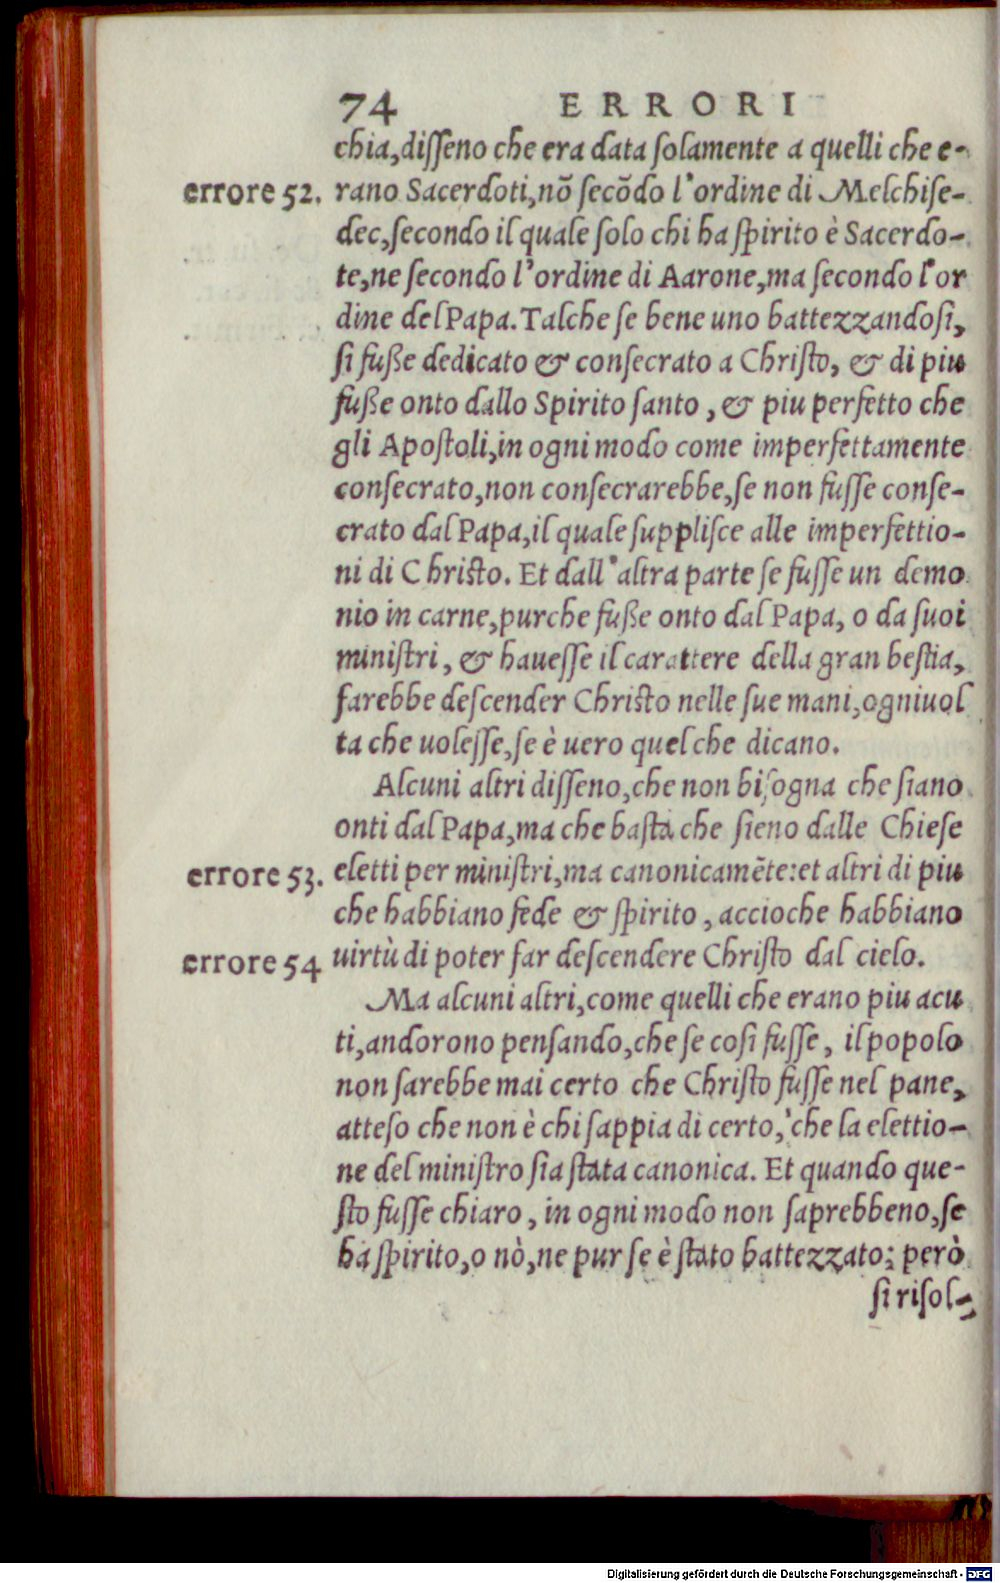 74 ERRORI
chia,disseno che era data solamente a quelli che e-
errore 52. rano Sacerdoti,nõ secõdo l'ordine di Melchise-
dec,secondo il quale solo chi ha spirito è Sacerdo-
te,ne secondo l'ordine di Aarone,ma secondo l'or
dine del Papa. Talche se bene uno battezzandosi,
si fuße dedicato & consecrato a Christo, & di piu
fuße onto dallo Spirito santo, & piu perfetto che
gli Apostoli,in ogni modo come imperfettamente
consecrato,non consecrarebbe,se non fusse conse-
crato dal Papa,il quale supplisce alle imperfettio-
ni di Christo. Et dall'altra parte se fusse un demo
nio in carne,purche fuße onto dal Papa, o da suoi
ministri, & hauesse il carattere della gran bestia,
farebbe descender Christo nelle sue mani,ogniuol
ta che uolesse,se è uero quel che dicano.
Alcuni altri disseno,che non bisogna che siano
onti dal Papa,ma che basta che sieno dalle Chiese
errore 53. eletti per ministri,ma canonicamẽte:et altri di piu
che habbiano fede & spirito, accioche habbiano
errore 54 uirtù di poter far descendere Christo dal cielo.
Ma alcuni altri,come quelli che erano piu acu
ti,andorono pensando,che se cosi fusse, il popolo
non sarebbe mai certo che Christo fusse nel pane,
atteso che non è chi sappia di certo, che la elettio-
ne del ministro sia stata canonica. Et quando que-
sto fusse chiaro, in ogni modo non saprebbeno,se
ha spirito,o nò,ne pur se è stato battezzato; però
si risol-
Digitalisierung gefördert durch die Deutsche Forschungsgemeinschaft - DFG